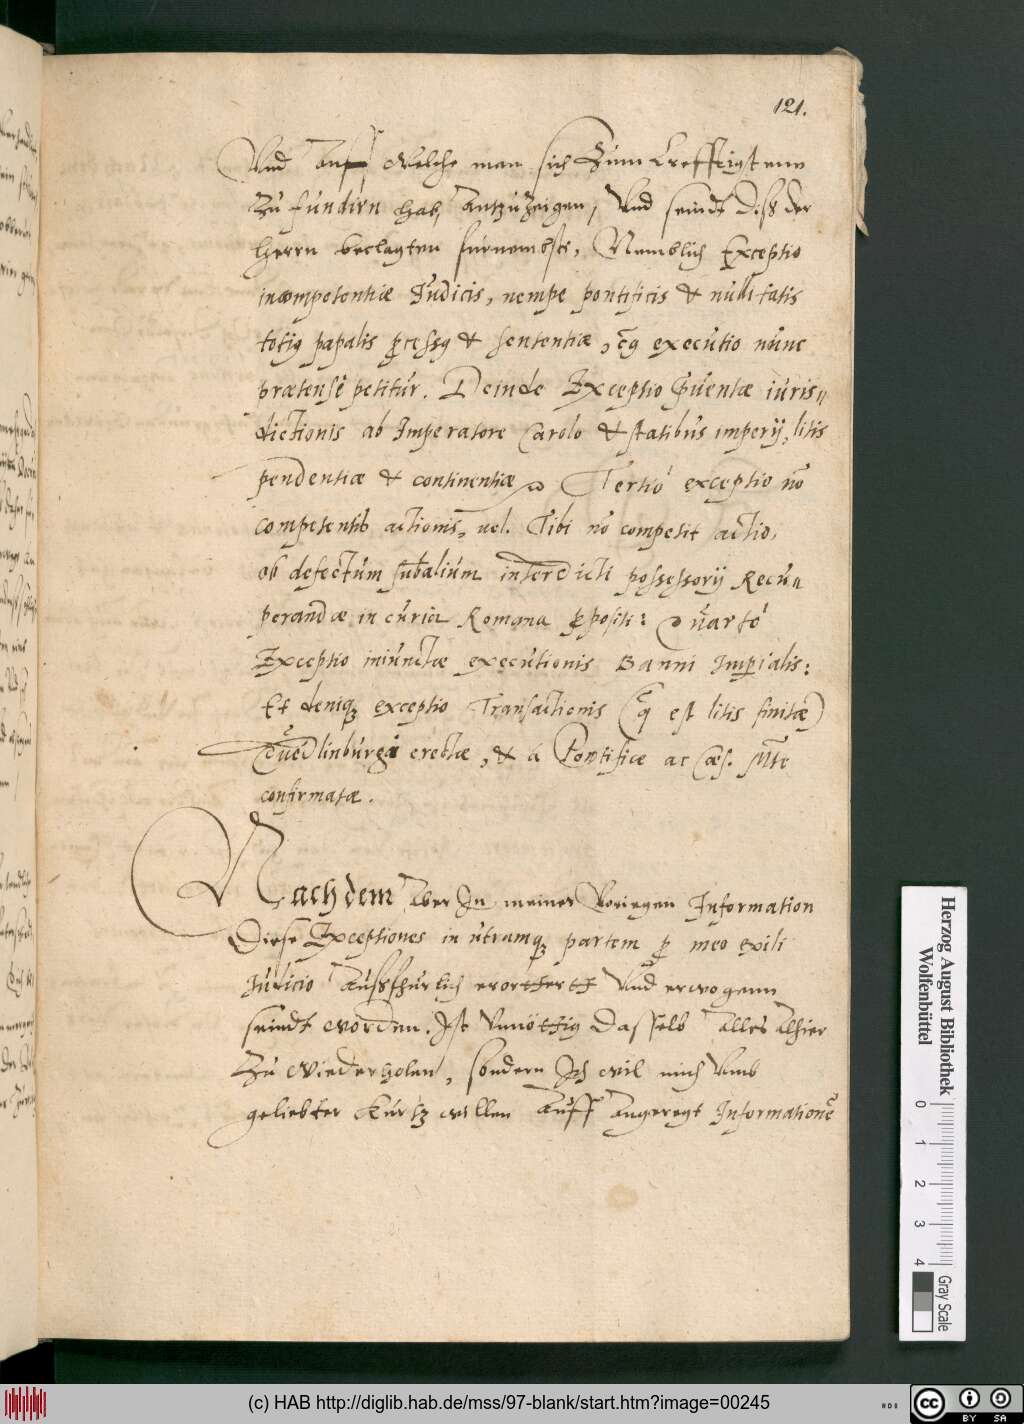 121.
Vnd auff welche man sich zum krefftigstenn
zu fundirn hab, antzuzeigen, Vnd seindt diß der
Herrn beclagten furnembste, Nemblich Exceptio
incompetentiæ Iudicis, nempe pontificis & nullitatis
totiq papalis pcessq & sententiæ, executio nunc
prætensè petitur. Deinde Exceptio pventæ iuris„
dictionis ab Imperatore Carolo & statibus imperij, litis
pendentiæ & continentiæ Tertiò exceptio nō
competentis actionis, uel. Tibi nō competit actio,
ob defectum sub̄alium interdicti possessorij Recu„
perandæ in curia Romana ppositi: Quartò
Exceptio iniunctæ executionis Banni Imp̄ialis:
Et deniq exceptio Transactionis (q̄ est litis finitæ)
Quedlinburgi erectæ, & a Pontifice ac Cæs. Mte
confirmatæ.
Nachdem aber In meiner Vorigen Information
Diese Exceptiones in utramq partem p meo exili
Iudicio außfhurlich erortertt Vnd erwogenn
seindt worden. Ist Vnnöttig dasselb alles alhier
zu wiederholen, sondern Ich wil mich Vmb
geliebter kurtz willen auff angeregt Informationē
Herzog August Bibliothek
Wolfenbüttel
0 1 2 3 4
Gray Scale
(c) HAB http://diglib.hab.de/mss/97-blank/start.htm?image=00245
cc BY SA